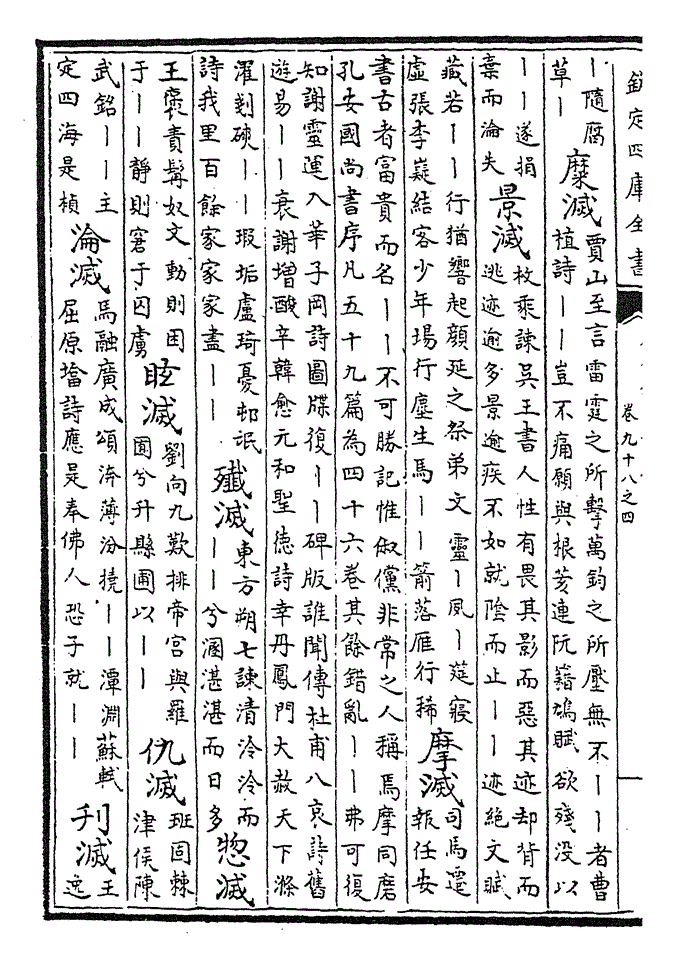 欽定四庫全書 卷九十八之四
丨隨腐
草丨
糜滅
賈山至言雷霆之所擊萬鈞之所壓無不丨丨者曹
植詩丨丨豈不痛願與根荄連阮籍鳩賦欲殘没以
丨丨遂捐
棄而淪失
景滅
枚乘諫吳王書人性有畏其影而惡其迹却背而
逃迹逾多景逾疾不如就陰而止丨丨迹絶文賦
藏若丨丨行猶響起顔延之祭弟文靈丨夙丨筵寢
虛張李嶷結客少年場行塵生馬丨丨箭落雁行稀
摩滅
司馬遷
報任安
書古者富貴而名丨丨不可勝記惟俶儻非常之人稱焉摩同磨
孔安國尚書序凡五十九篇為四十六卷其餘錯亂丨丨弗可復
知謝靈運入華子岡詩圖牒復丨丨碑版誰聞傳杜甫八哀詩舊
遊易丨丨衰謝增酸辛韓愈元和聖徳詩幸丹鳳門大赦天下滌
濯剗磢丨丨瑕垢盧琦憂邨氓
詩我里百餘家家家盡丨丨
殲滅
東方朔七諫清泠泠而
丨丨兮溷湛湛而日多
惣滅
王襃責髯奴文動則困
于丨丨靜則窘于囚虜
眩滅
劉向九歎排帝宮與羅
囿兮升縣圃以丨丨
仇滅
班固棘
津侯陳
武銘丨丨主
定四海是楨
淪滅
馬融廣成頌洊薄汾撓丨丨潭淵蘇軾
屈原塔詩應是奉佛人恐子就丨丨
刋滅
王
逸